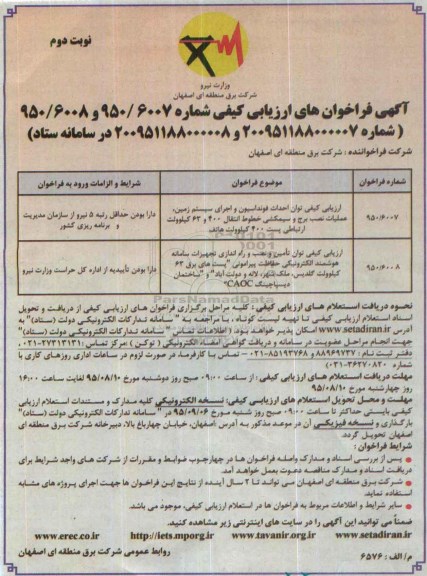 نوبت دوم
وزارت نیرو
شرکت برق منطقه ای اصفهان
آگهی فراخوان های ارزیابی کیفی شماره ۹۵۰/۶۰۰۷ و ۹۵۰/۶۰۰۸
( شماره ۲۰۰۹۵۱۱۸۸۰۰۰۰۰۷ و ۲۰۰۹۵۱۱۸۸۰۰۰۰۰۸ در سامانه ستاد)
شرکت فراخواننده : شرکت برق منطقه ای اصفهان
شماره فراخوان موضوع فراخوان شرایط و الزامات ورود به فراخوان
۹۵۰/۶۰۰۷ ارزیابی کیفی توان احداث فونداسیون و اجرای سیستم زمین، عملیات نصب برج و سیمکشی خطوط انتقال ۴۰۰ و ۶۳ کیلوولت ارتباطی پست ۴۰۰ کیلوولت هاتف دارا بودن حداقل رتبه ۵ نیرو از سازمان مدیریت و برنامه ریزی کشور
۹۵۰/۶۰۰۸ ارزیابی کیفی توان تأمین و نصب و راه اندازی تجهیزات سامانه هوشمند الکترونیکی حفاظت پیرامونی "پست های برق ۶۳ کیلوولت گلدیس، ملک شهر، لاله و دولت آباد" و "ساختمان دیسپاچینگ CAOC" دارا بودن تأییدیه از اداره کل حراست وزارت نیرو
ParsNamadData
نحوه دریافت استعلام های ارزیابی کیفی : کلیه مراحل برگزاری فراخوان های ارزیابی کیفی از دریافت و تحویل
اسناد استعلام ارزیابی کیفی تا تهیه لیست کوتاه ، با مراجعه به "سامانه تدارکات الکترونیکی دولت (ستاد)" به
آدرس www.setadiran.ir امکان پذیر خواهد بود. ( اطلاعات تماس "سامانه تدارکات الکترونیکی دولت (ستاد)"
جهت انجام مراحل عضویت در سامانه و دریافت گواهی امضاء الکترونیکی ( توکن ) :مرکز تماس :۲۷۳۱۳۱۳۱-۰۲۱،
دفتر ثبت نام : ۸۸۹۶۹۷۳۷ و ۸۵۱۹۳۷۶۸-۰۲۱ – تماس با کارفرما، در صورت لزوم در ساعات اداری روزهای کاری با
شماره ۳۶۲۷۰۸۲۰-۰۳۱)
مهلت دریافت استعلام های ارزیابی کیفی : از ساعت ۰۹:۰۰ صبح روز دوشنبه مورخ ۹۵/۰۸/۱۰ لغایت ساعت ۱۶:۰۰
روز چهارشنبه مورخ ۹۵/۰۸/۱۰
مهلت و محل تحویل استعلام های ارزیابی کیفی: نسخه الکترونیکی کلیه مدارک و مستندات استعلام ارزیابی
کیفی بایستی حداکثر تا ساعت ۰۹:۰۰ صبح روز شنبه مورخ ۹۵/۰۹/۰۶ در "سامانه تدارکات الکترونیکی دولت (ستاد)"
بارگذاری و نسخه فیزیکی آن در موعد مذکور به آدرس اصفهان، خیابان چهارباغ بالا، دبیرخانه شرکت برق منطقه ای
اصفهان تحویل گردد.
شرایط فراخوان :
پس از بررسی اسناد و مدارک واصله فراخوان ها در چهارچوب ضوابط و مقررات از شرکت های واجد شرایط برای
دریافت اسناد و مدارک مناقصه دعوت بعمل خواهد آمد.
شرکت برق منطقه ای اصفهان می تواند تا ۲ سال آینده از نتایج این فراخوان ها جهت اجرای پروژه های مشابه
استفاده نماید.
سایر شرایط و اطلاعات مربوط به فراخوان ها در استعلام ارزیابی کیفی، موجود می باشد.
ضمناً می توانید این آگهی را در سایت های اینترنتی زیر مشاهده کنید.
www.setadiran.ir www.tavanir.org.ir http://iets.mporg.ir www.erec.co.ir
روابط عمومی شرکت برق منطقه ای اصفهان
م/ الف : ۶۵۷۶